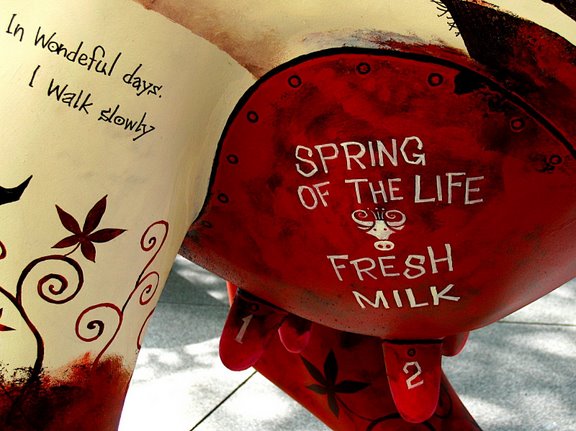 In Wondeful days.
I Walk slowly
SPRING
OF THE LIFE
FRESH
MILK
1
2